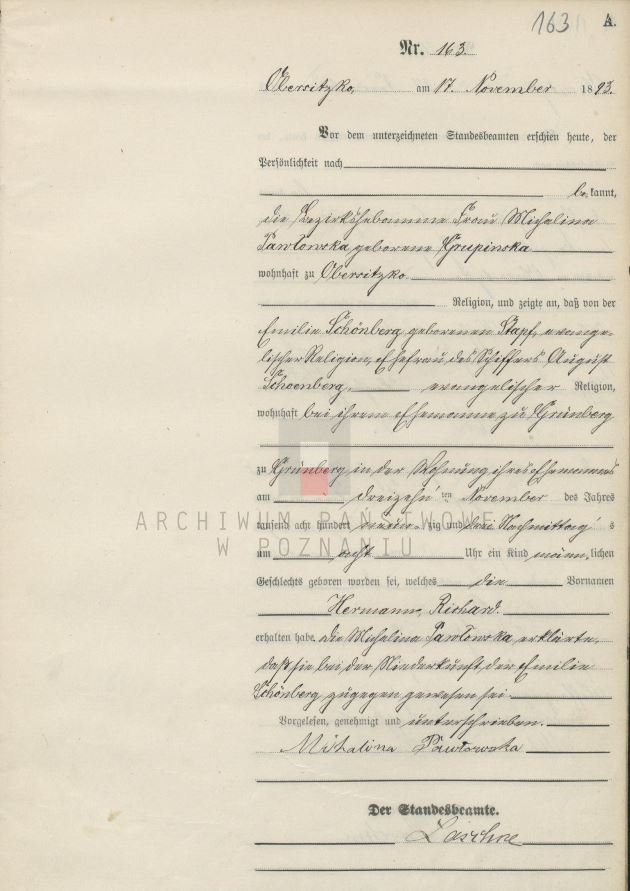 163
A.
Nr. 163.
Obersitzko, am 17. November 1893.
Vor dem unterzeichneten Standesbeamten erschien heute, der
Persönlichkeit nach
bekannt,
die Bezirkshebamme Frau Michalina
Pawłowska geborene Grupinska
wohnhaft zu Obersitzko.
Religion, und zeigte an, daß von der
Emilie Schönberg geborenen Stapf, evange-
lischer Religion, Ehefrau des Schiffers August
Schoenberg, evangelischer Religion,
wohnhaft bei ihrem Ehemanne zu Grünberg
zu Grünberg in der Wohnung ihres Ehemannes
am dreizehnten November des Jahres
tausend acht hundert neunzig und drei Nachmittags
um acht Uhr ein Kind männlichen
Geschlechts geboren worden sei, welches die Vornamen
Hermann, Richard.
erhalten habe. die Michalina Pawłowska erklärte,
daß sie bei der Niederkunft der Emilie
Schönberg zugegen gewesen sei
Vorgelesen, genehmigt und unterschrieben.
Mihalina Pawłowska
Der Standesbeamte.
ARCHIWUM PAŃSTWOWE
W POZNANIU